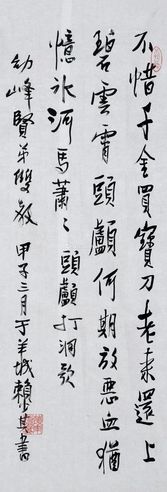 不惜千金買寶刀老來還上
碧雲霄頭顱何期放惡血猶
憶氷河馬蕭〻頭顱打澗歌
幼峰賢弟雙教 甲子三月于羊城賴少其書